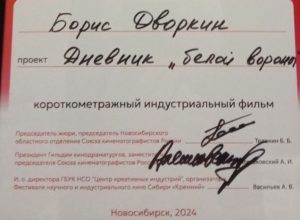 Борис Дворкин
проект Дневник „белой вороны
короткометражный индустриальный фильм
Председатель жюри, председатель Новосибирского
областного отделения Союза кинематографистов России
Б. Б.
Президент Гильдии кинодраматургов, заместитель
председателя Союза кинематографистов России
А. И.
И. о. директора ГБУК НСО "Центр креативных индустрий", организатора
Фестиваля научного и индустриального кино Сибири «Кремний»
Васильев А. В.
Новосибирск, 2024